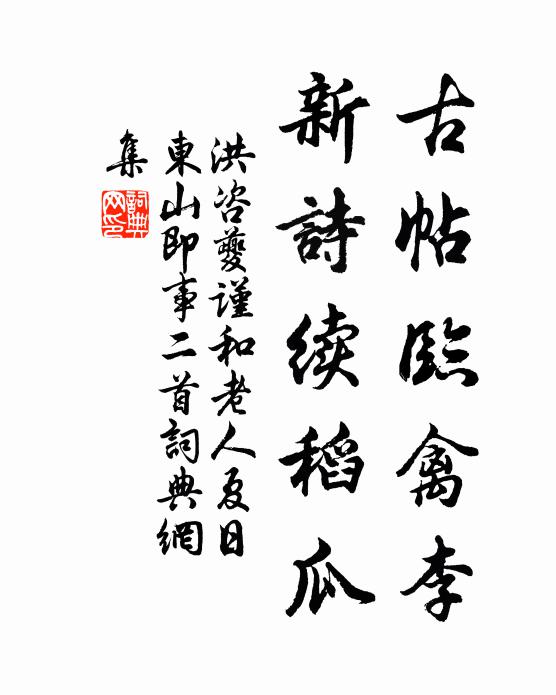 古帖臨禽李
新詩續稻瓜
洪咨夔謹和老人夏日
東山即事二首詞典網
集
詞典
网印